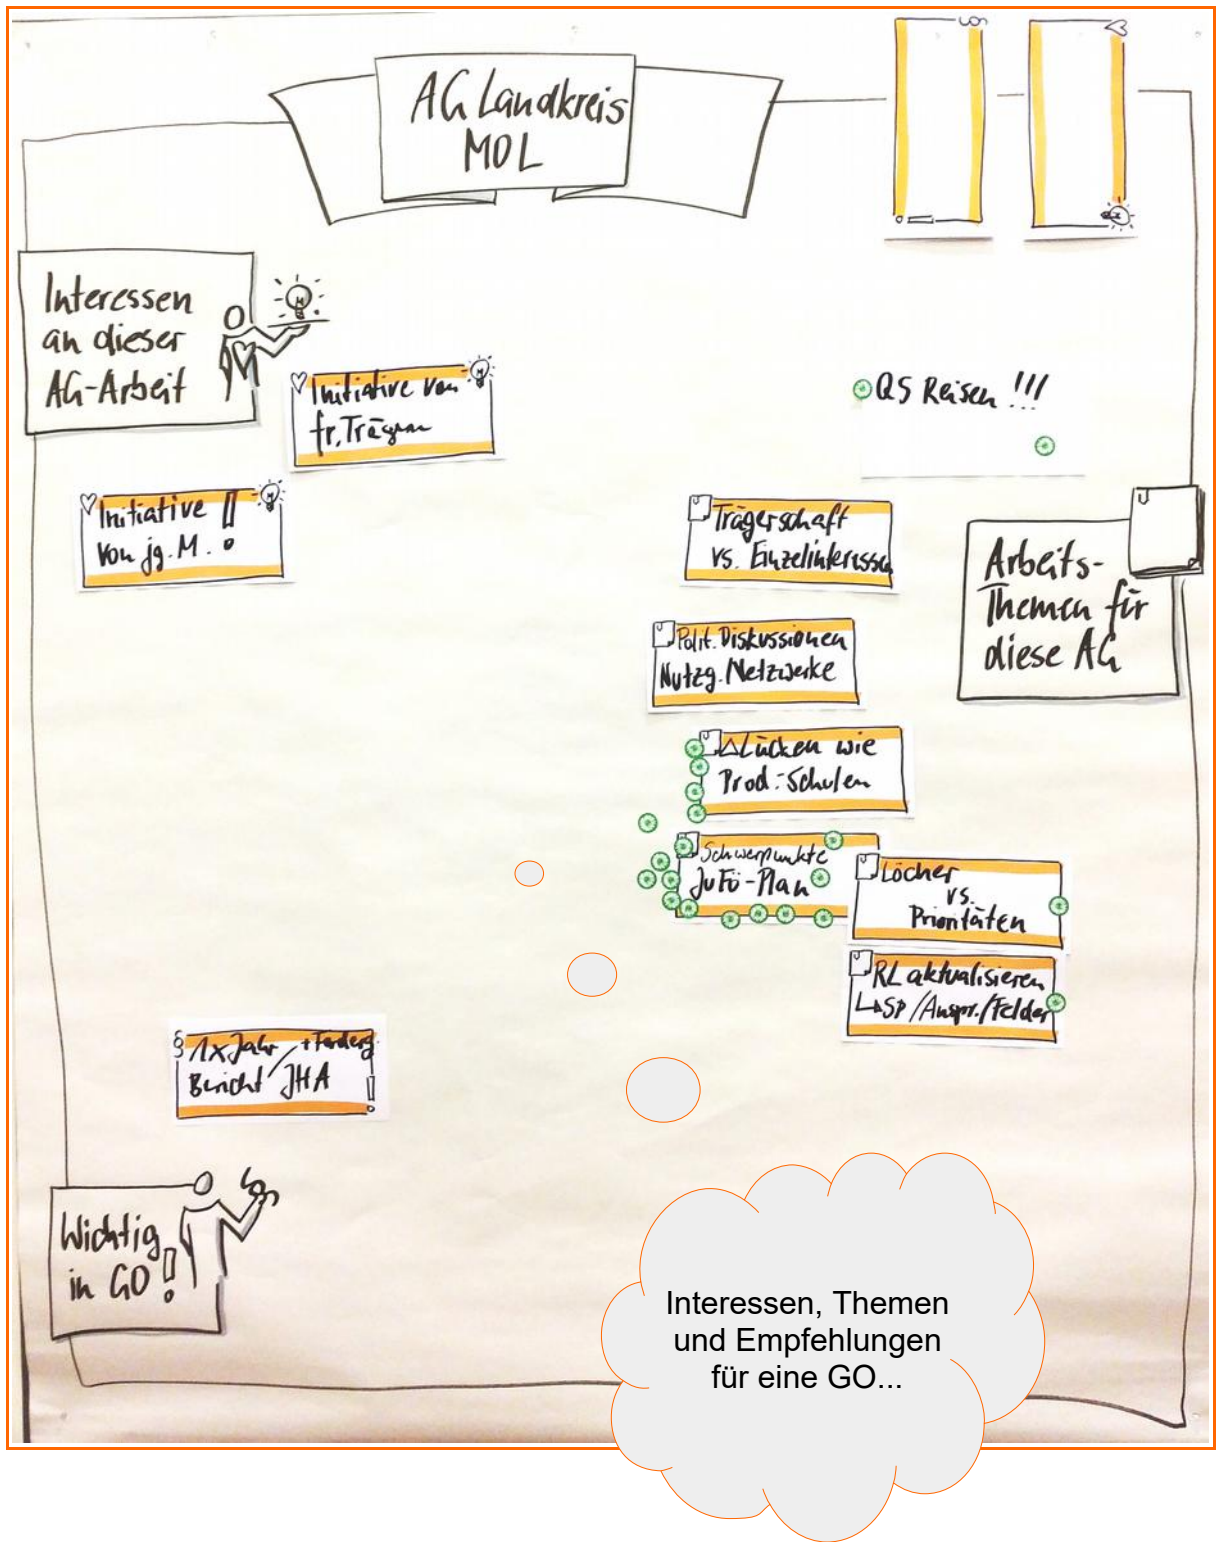 AG Landkreis
MOL
Interessen
an dieser
AG-Arbeit
Initiative von
fr. Trägern
Initiative !
von jg. M.
QS Reisen !!!
Trägerschaft
vs. Einzelinteressen
Arbeits-
Themen für
diese AG
Polit. Diskussionen
Nutzg. Netzwerke
Lücken wie
Prod.-Schulen
Schwerpunkte
JuFö-Plan
Löcher
vs.
Prioritäten
RL aktualisieren
↳SP/Anspr./Felder
§ 1x Jahr + Forderg.
Bericht / JHA !
Wichtig
in GO !
Interessen, Themen
und Empfehlungen
für eine GO...